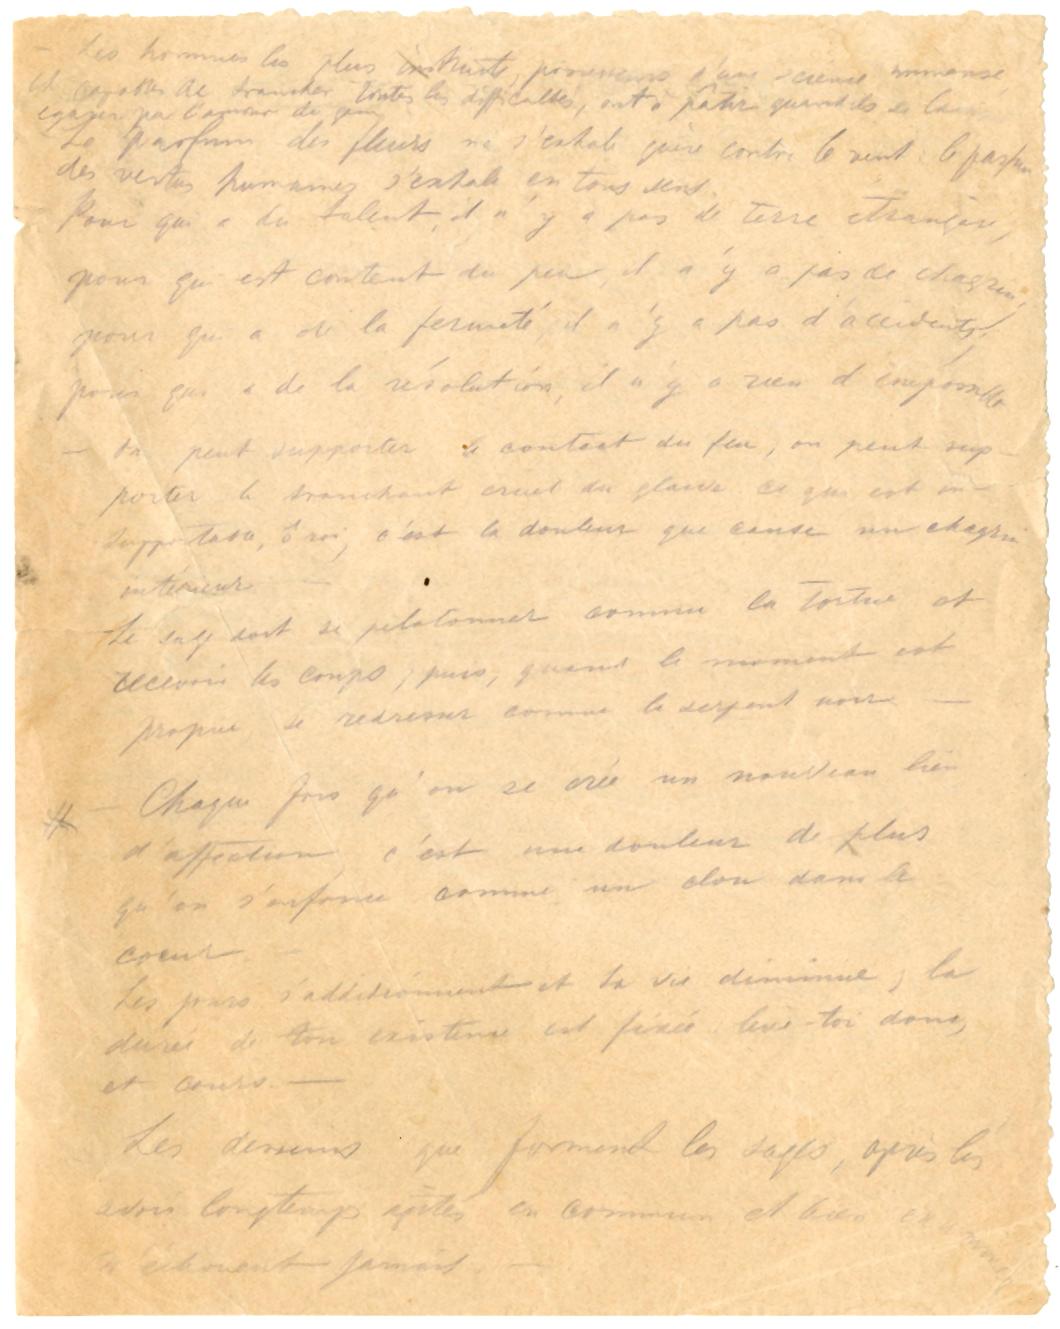 - Les hommes les plus instruits, possesseurs d'une science immense
et capables de trancher toutes les difficultés, ont à pâtir quand ils se
égarer par l'amour du gain
Le parfum des fleurs ne s'exhale guère contre le vent : le parfum
des vertus humaines s'exhale en tous sens.
Pour qui a du talent, il n'y a pas de terre étrangère,
pour qui est content du peu, il n'y a pas de chagrin,
pour qui a de la fermeté, il n'y a pas d'accidents,
pour qui a de la résolution, il n'y a rien d'impossible
- On peut supporter le contact du feu, on peut sup-
porter le tranchant cruel du glaive ce qui est in-
supportable, ô roi, c'est la douleur que cause un chagrin
intérieur -
Le sage doit se pelotonner comme la tortue et
recevoir les coups ; puis, quand le moment est
propice se redresser comme le serpent noir -
- Chaque fois qu'on se crée un nouveau lien
d'affection, c'est une douleur de plus
qu'on s'enfonce comme un clou dans le
coeur. -
Les jours s'additionnent et ta vie diminue ; la
durée de ton existence est fixée. lève-toi donc,
et cours. -
Les desseins que forment les sages, après les
avoir longtemps agités en commun et bien examinés
n'échouent jamais. -